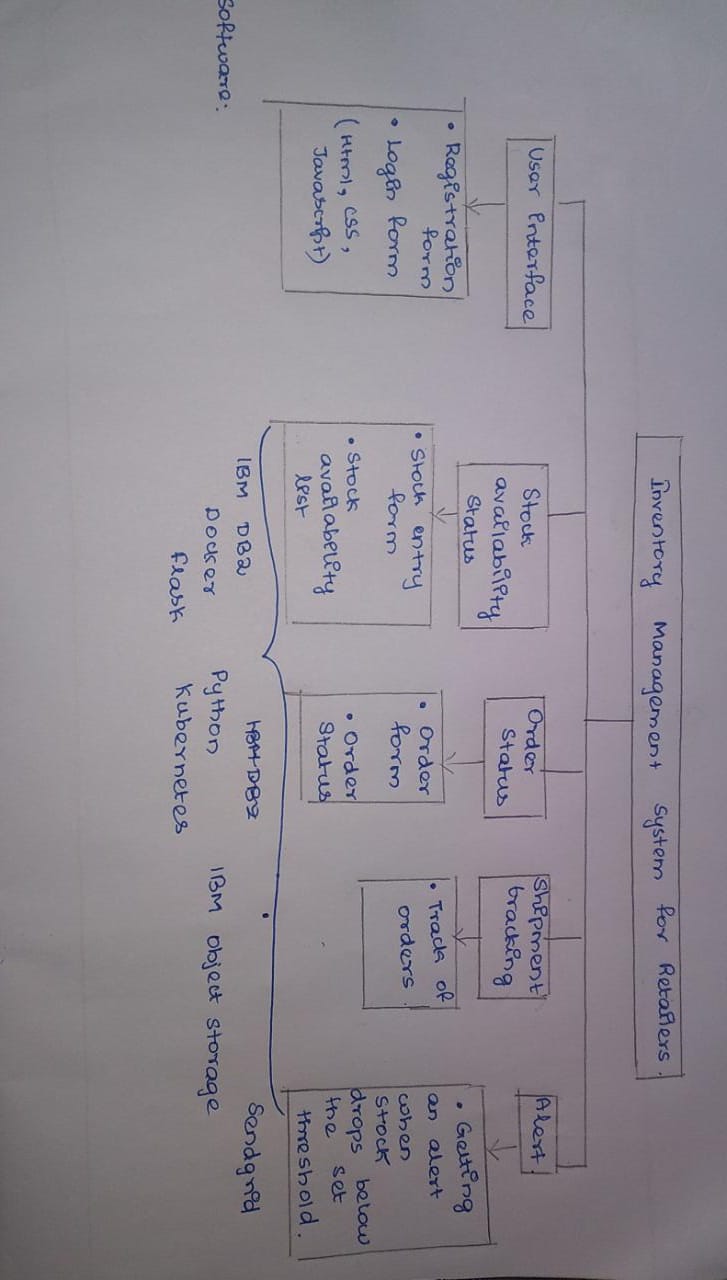 Inventory Management System for Retailers.
User interface
Registration
form
Login form
(Html, CSS,
Javascript)
Stock
availability
Status
Stock entry
form
Stock
availability
list
Order
Status
Order
form
Order
Status
Shipment
tracking
Track of
orders
Alert.
Getting
an alert
when
Stock
drops below
the set
threshold.
Software:
IBM DB2
Docker
flask
IBM DB2
Python
Kubernetes
IBM object storage
Sendgrid